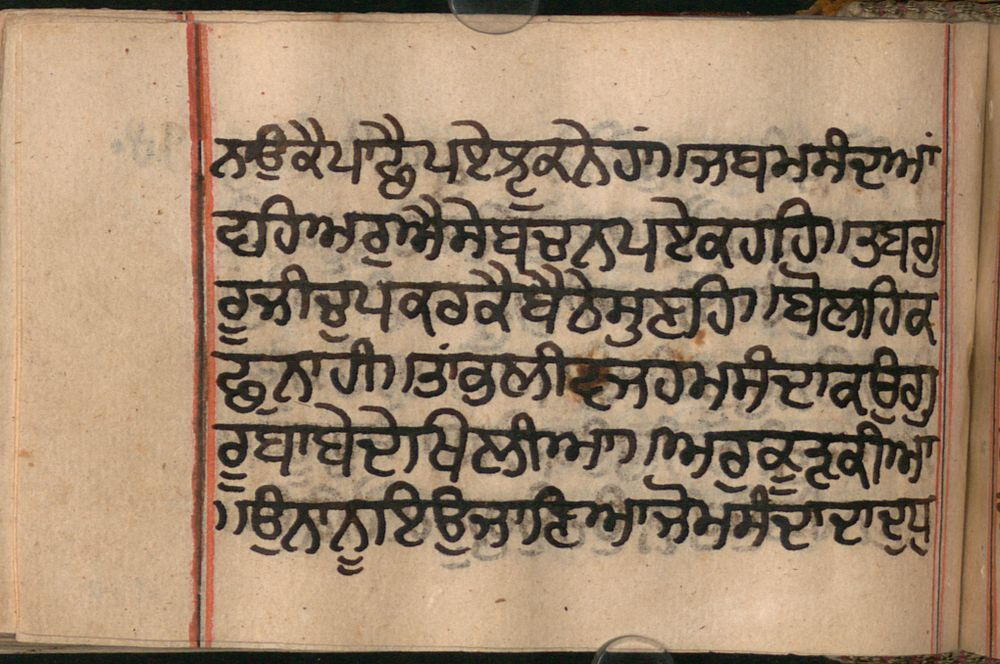 ਨਾਉਕੈਪਾਛੈਪਏਭ੍ਰੂਕਨੇਹਾਂ॥ਜਬਮਸੰਦਾਆਂ
ਵਹਿਅਰੁਐਸੇਬਚਨਪਏਕਹਹਿ॥ਤਬਗੁ
ਰੂਜੀਚੁਪਕਰਕੈਬੈਠੇਸੁਣਹਿ॥ਬੋਲਹਿਕ
ਛੁਨਾਹੀ॥ਤਾਂਕੁਲੀਵਜਹਮਸੰਦਾਕਉਗੁ
ਰੂਬਾਬੇਦੇਖਿਲੀਆ॥ਅਰੁਕੂੜਕੀਆ
॥ਉਨਾਨੂਇਉਜਾਣਿਆਜੋਮਸੰਦਾਦਾਦੁਧੁ